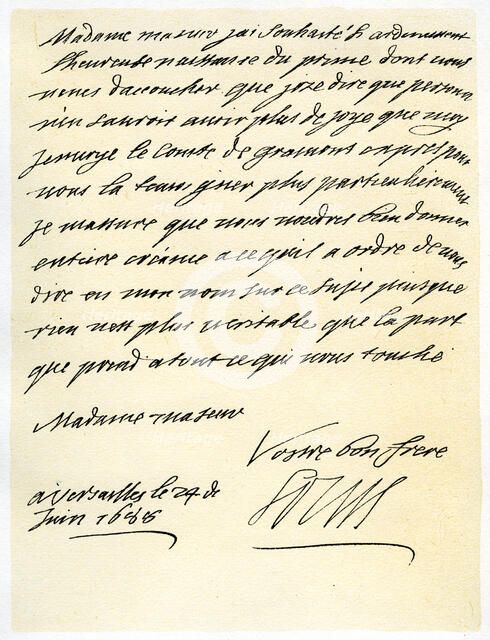 Madame ma seur jai souhaité si ardemment
lheureuse naissance du prince dont vous
venes daccoucher que jose dire que personne
nen sauroit avoir plus de joye que moy
Jenvoye le Comte de gramont exprés pour
vous la temoigner plus particulierement
je massure que vous voudres bien donner
entiere créance a ce quil a ordre de vous
dire en mon nom sur ce sujet puisque
rien nest plus veritable que la part
que prend a tout ce qui vous touche
Madame ma seur
Vostre bon frere
a Versailles le 24 de
Juin 1688
Louis